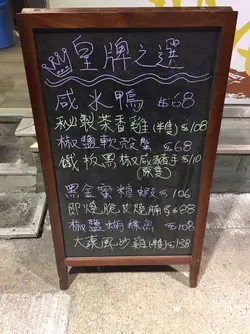 皇牌之選
咸水鴨 $68
秘製茶香雞(半隻) $108
椒鹽軟殼蟹 $68
鐵板黑椒咸豬手 $110
黑金蜜糖蝦 $106
即燒脆皮燒腩 $88
椒鹽蝴蝶魚 $108
沙雞(半隻) $138